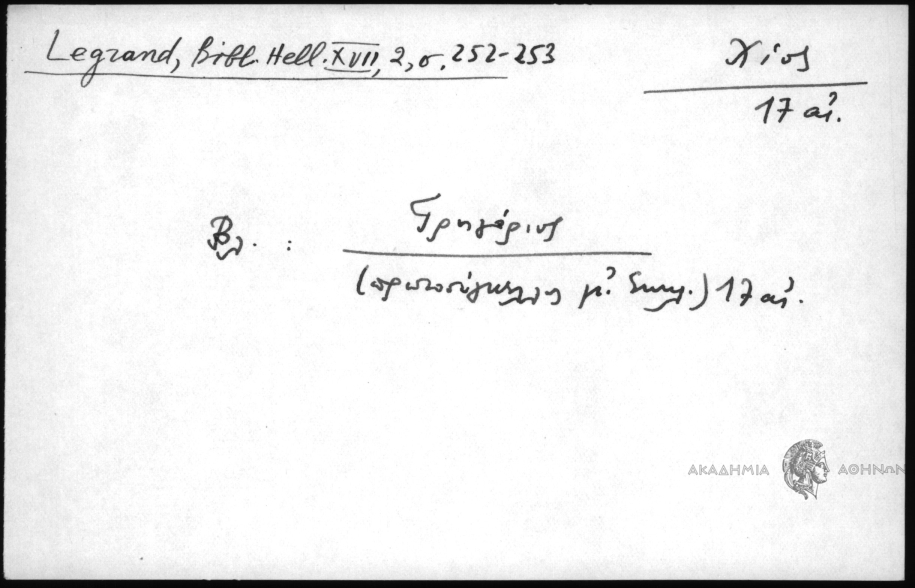 Legrand, Bibl. Hell. XVII, 2, σ. 252-253
Χίος
17 αἰ.
Βλ. : Γρηγόριος
(πρωτοσύγκελλος μ. Ἐκκλ.) 17 αἰ.
ΑΚΑΔΗΜΙΑ ΑΘΗΝΩΝ